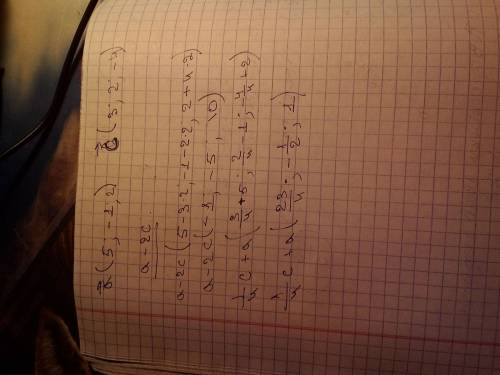 a⃗ (5; -1; 2) c⃗ (3; 2; -4)
a-2c
a-2c (5-3·2; -1-2·2; 2+4·2)
a-2c (-1; -5; 10)
1/4 c + a (3/4 + 5; 2/4 - 1; -4/4 + 2)
1/4 c + a (23/4; -1/2; 1)